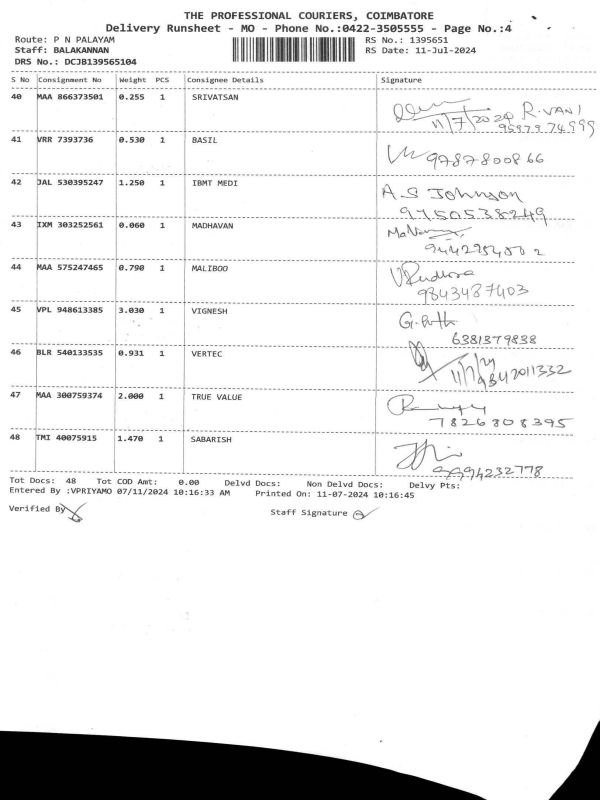 THE PROFESSIONAL COURIERS, COIMBATORE
Delivery Runsheet - MO - Phone No.:0422-3505555 - Page No.:4
Route: P N PALAYAM RS No.: 1395651
Staff: BALAKANNAN RS Date: 11-Jul-2024
DRS No.: DCJB139565104
S No Consignment No Weight PCS Consignee Details Signature
40 MAA 866373501 0.255 1 SRIVATSAN R.VANI
11/7/2024 95979 74999
41 VRR 7393736 0.530 1 BASIL 9787800866
42 JAL 530395247 1.250 1 IBMT MEDI A.S Johnson
9750538249
43 IXM 303252561 0.060 1 MADHAVAN
44 MAA 575247465 0.790 1 MALIBOO
9843487403
45 VPL 948613385 3.030 1 VIGNESH
6381379838
46 BLR 540133535 0.931 1 VERTEC
11/7/24
9842011332
47 MAA 300759374 2.000 1 TRUE VALUE
7826808395
48 TMI 40075915 1.470 1 SABARISH
9994232778
Tot Docs: 48 Tot COD Amt: 0.00 Delvd Docs: Non Delvd Docs: Delvy Pts:
Entered By :VPRIYAMO 07/11/2024 10:16:33 AM Printed On: 11-07-2024 10:16:45
Verified By Staff Signature